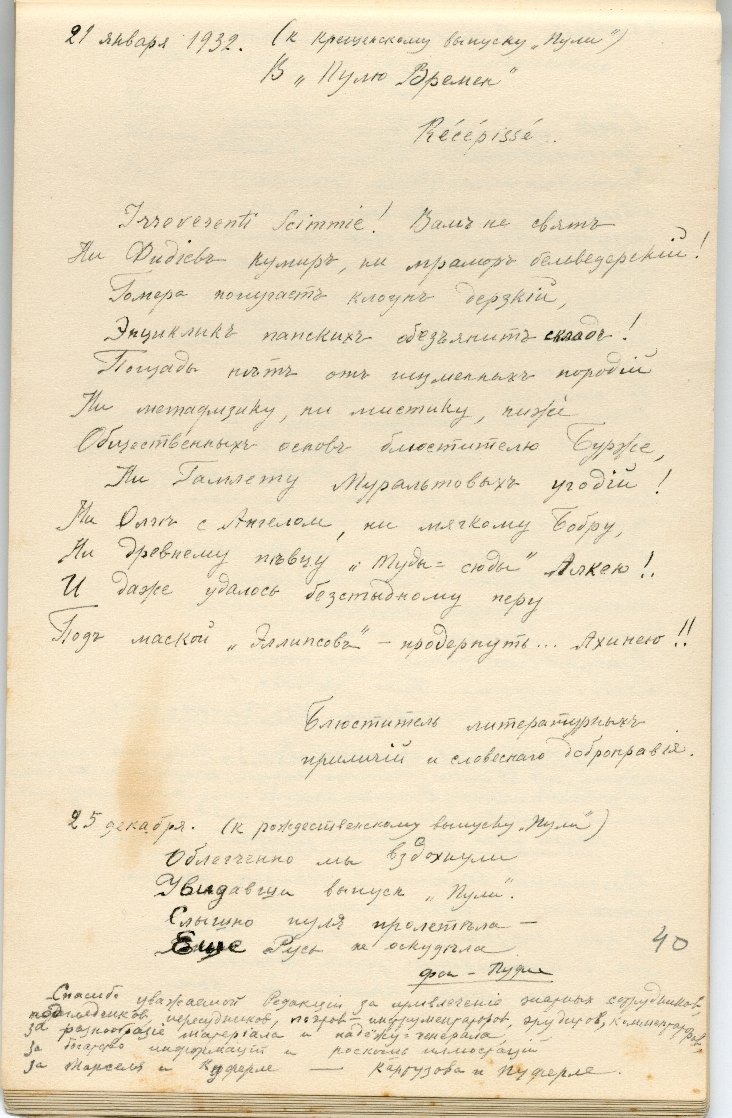 21 января 1932. (к крещенскому выпуску „Пули")
В „Пулю Времен"
Récépissé.
Irroverenti Scimmie! Вамъ не святъ
Ни Фидіевъ кумиръ, ни мраморъ бельведерскій!
Гомера попугаетъ клоунъ дерзкій,
Энцикликъ папскихъ обезьянитъ складъ!
Пощады нѣтъ отъ шуменныхъ пародій
Ни метафизику, ни мистику, ниже
Общественныхъ основъ блюстителю Бурже,
Ни Гамлету Муральтовыхъ угодій!
Ни Ольгѣ с Ангелом, ни мягкому Бобру,
Ни древнему пѣвцу „Туды-сюды" Алкею!
И даже удалось безстыдному перу
Подъ маской „Эллипсовъ" – продернуть... Ахинею!!
Блюститель литературныхъ
приличій и словеснаго добронравія.
25 декабря. (к рождественскому выпуску „Пули")
Облегченно мы вздохнули
Увидавши выпуск „Пули".
Слышно пуля пролетѣла –
Еще Русь не оскудѣла
фон-Пуфле
40
Спасибо уважаемой Редакціи за привлеченіе знатных сотрудников,
за разнообразіе матеріала и
за богатство информаціи и роскошь иллюстрацій
за Марселя и — Картузова и Пуферле.